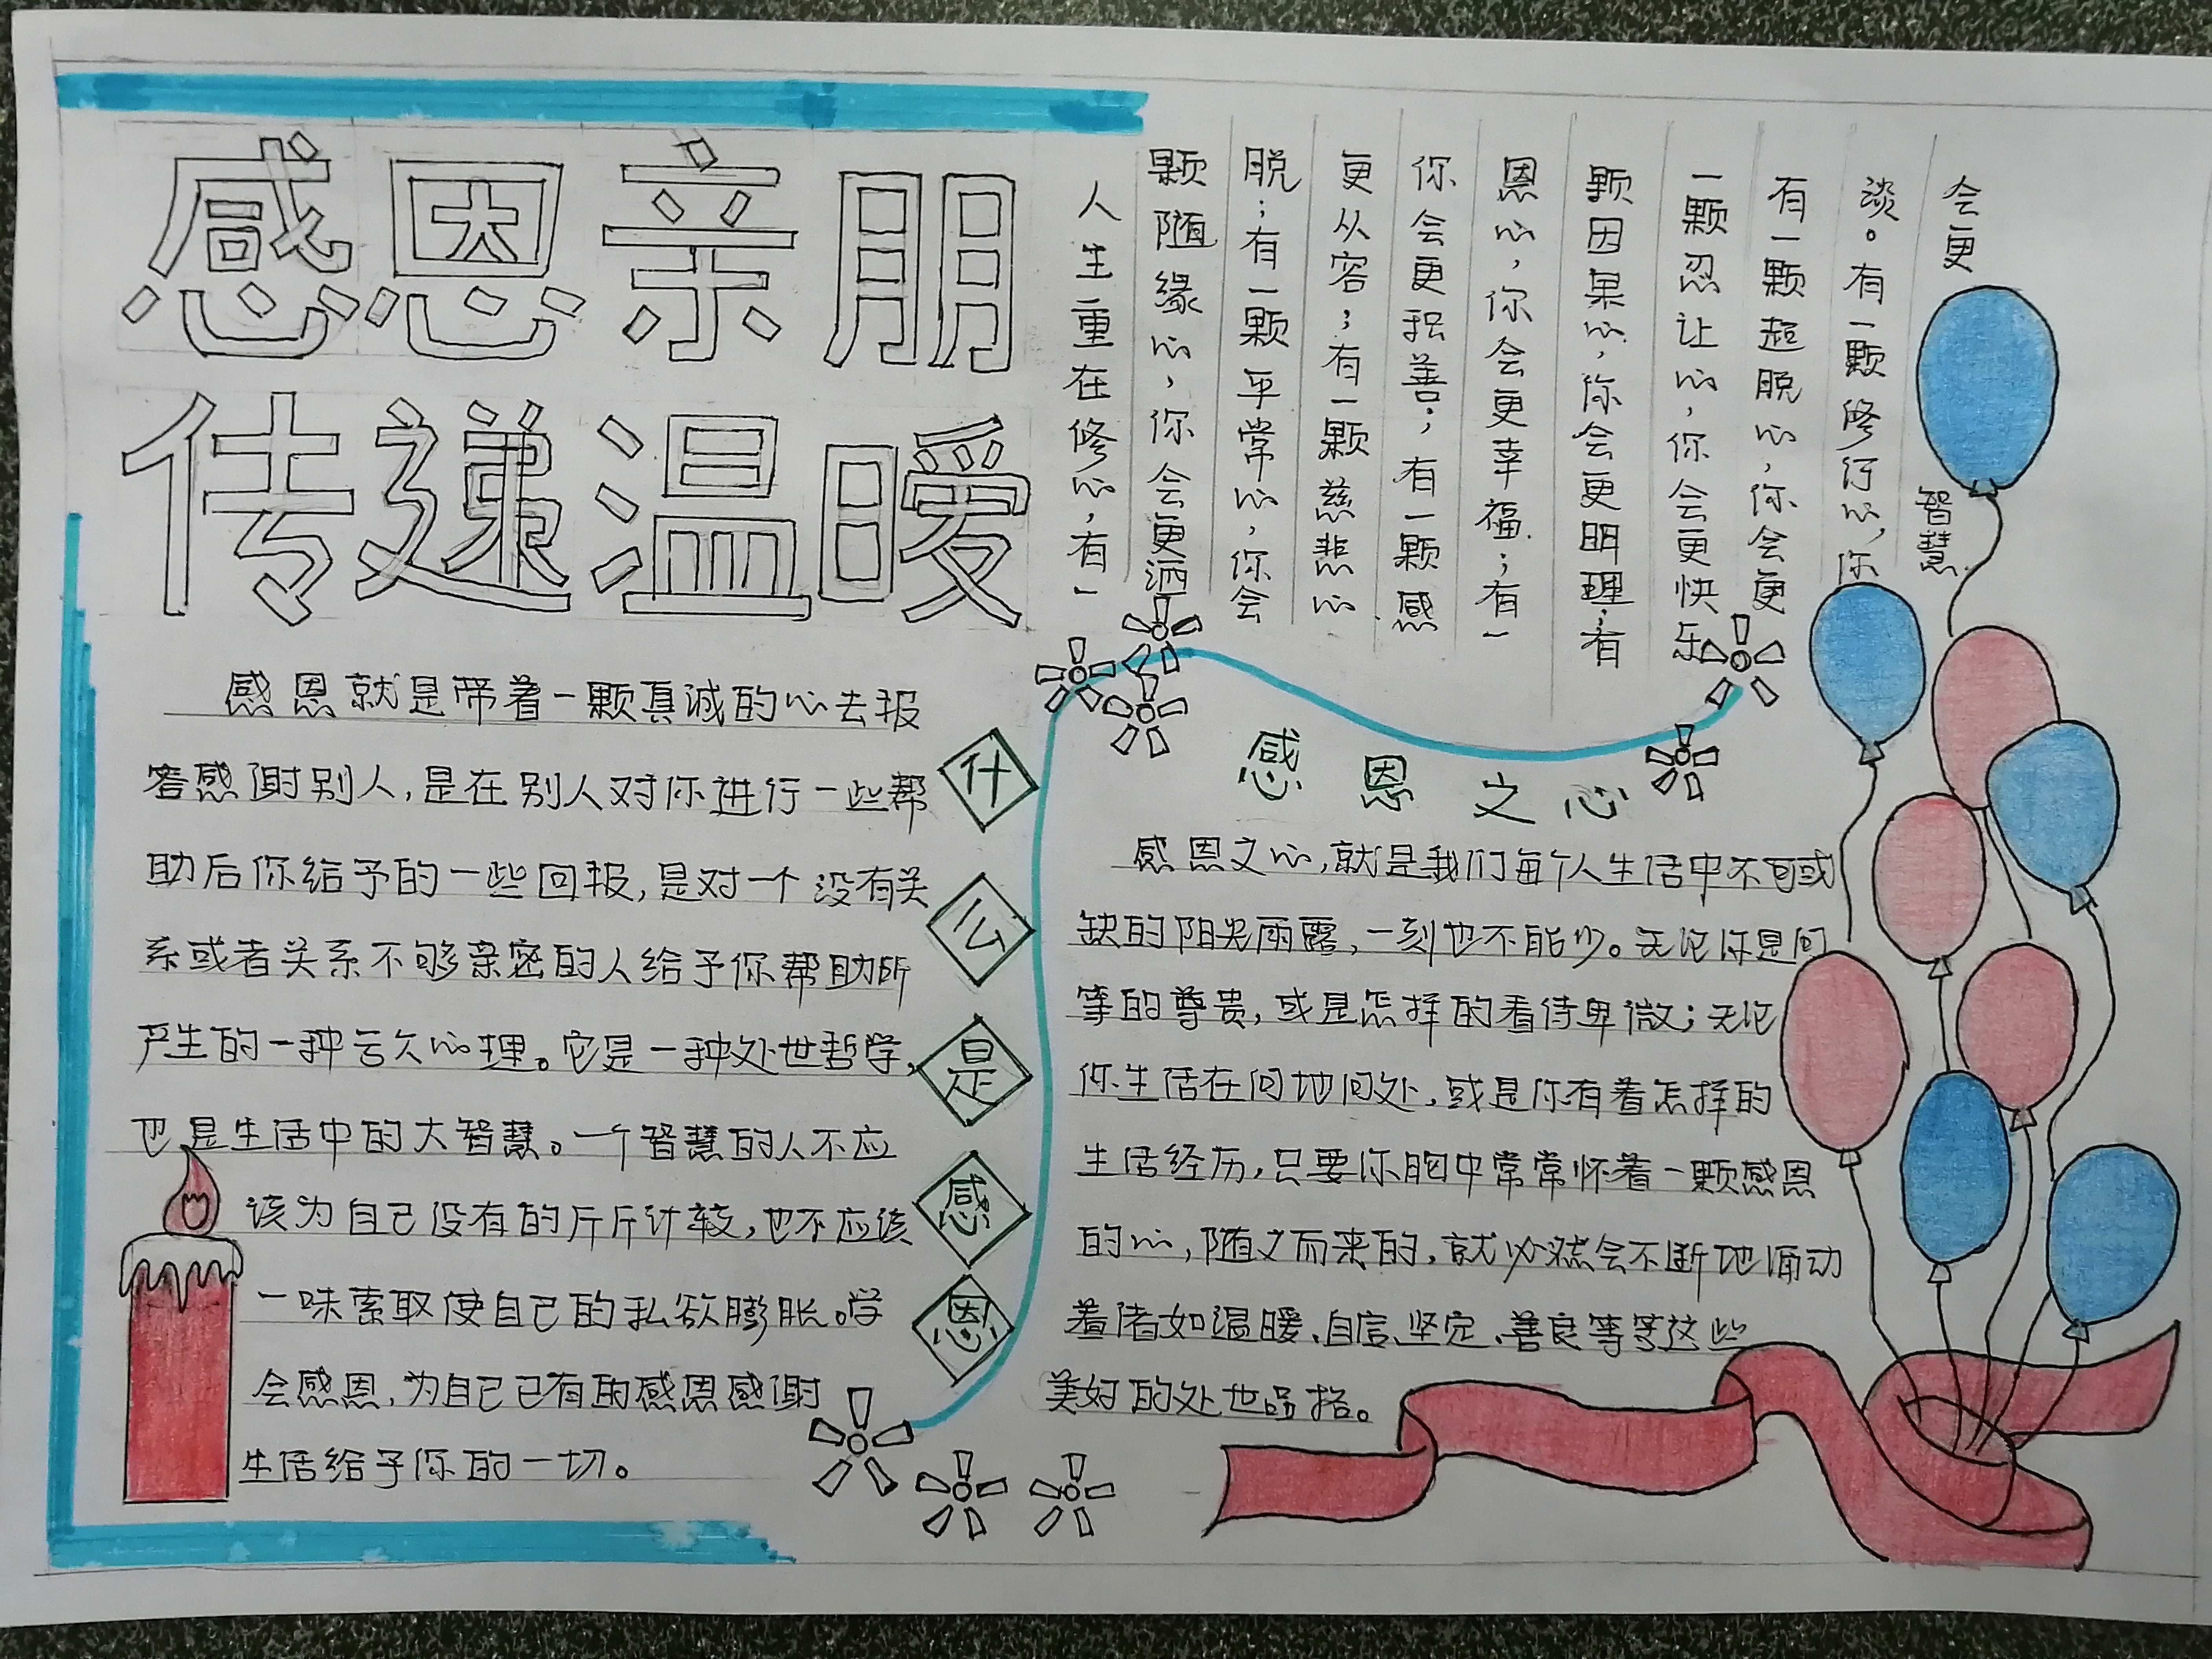 感恩亲朋
传递温暖
人生重在修心，有一
颗随缘心，你会更洒
脱；有一颗平常心，你会
更从容；有一颗慈悲心
你会更积善；有一颗感
恩心，你会更幸福；有一
颗因果心，你会更明理；有
一颗忍让心，你会更快乐
有一颗超脱心，你会更
淡。有一颗修行心，你
会更
智慧
什么是感恩
感恩就是带着一颗真诚的心去报
答感谢别人，是在别人对你进行一些帮
助后你给予的一些回报，是对一个没有关
系或者关系不够亲密的人给予你帮助所
产生的一种亏欠心理。它是一种处世哲学，
也是生活中的大智慧。一个智慧的人不应
该为自己没有的斤斤计较，也不应该
一味索取使自己的私欲膨胀。学
会感恩，为自己已有的感恩感谢
生活给予你的一切。
感恩之心
感恩之心，就是我们每个人生活中不可或
缺的阳光雨露，一刻也不能少。无论你是何
等的尊贵，或是怎样的看待卑微；无论
你生活在何地何处，或是你有着怎样的
生活经历，只要你胸中常常怀着一颗感恩
的心，随之而来的，就必然会不断地涌动
着诸如温暖、自信、坚定、善良等等这些
美好的处世品格。